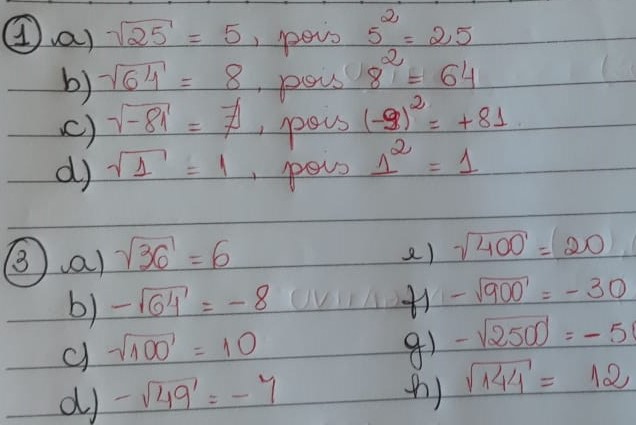 1 a) √25 = 5, pois 5² = 25
b) √64 = 8, pois 8² = 64
c) √-81 = ∄, pois (-9)² = +81
d) √1 = 1, pois 1² = 1
3 a) √36 = 6
b) -√64 = -8
c) √100 = 10
d) -√49 = -7
e) √400 = 20
f) -√900 = -30
g) -√2500 = -50
h) √144 = 12